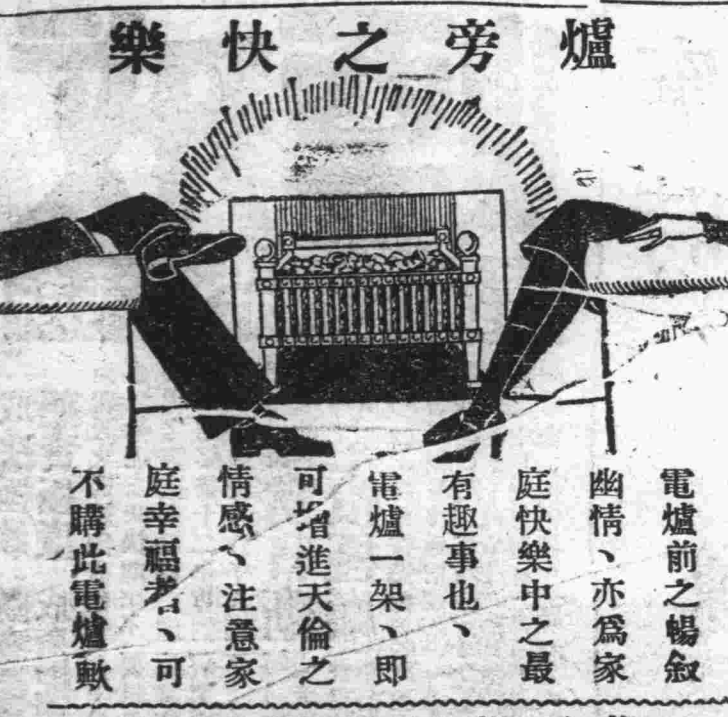 爐旁之快樂
電爐前之暢敘
幽情、亦爲家
庭快樂中之最
有趣事也、
電爐一架、即
可增進天倫之
情感、注意家
庭幸福者、可
不購此電爐歟